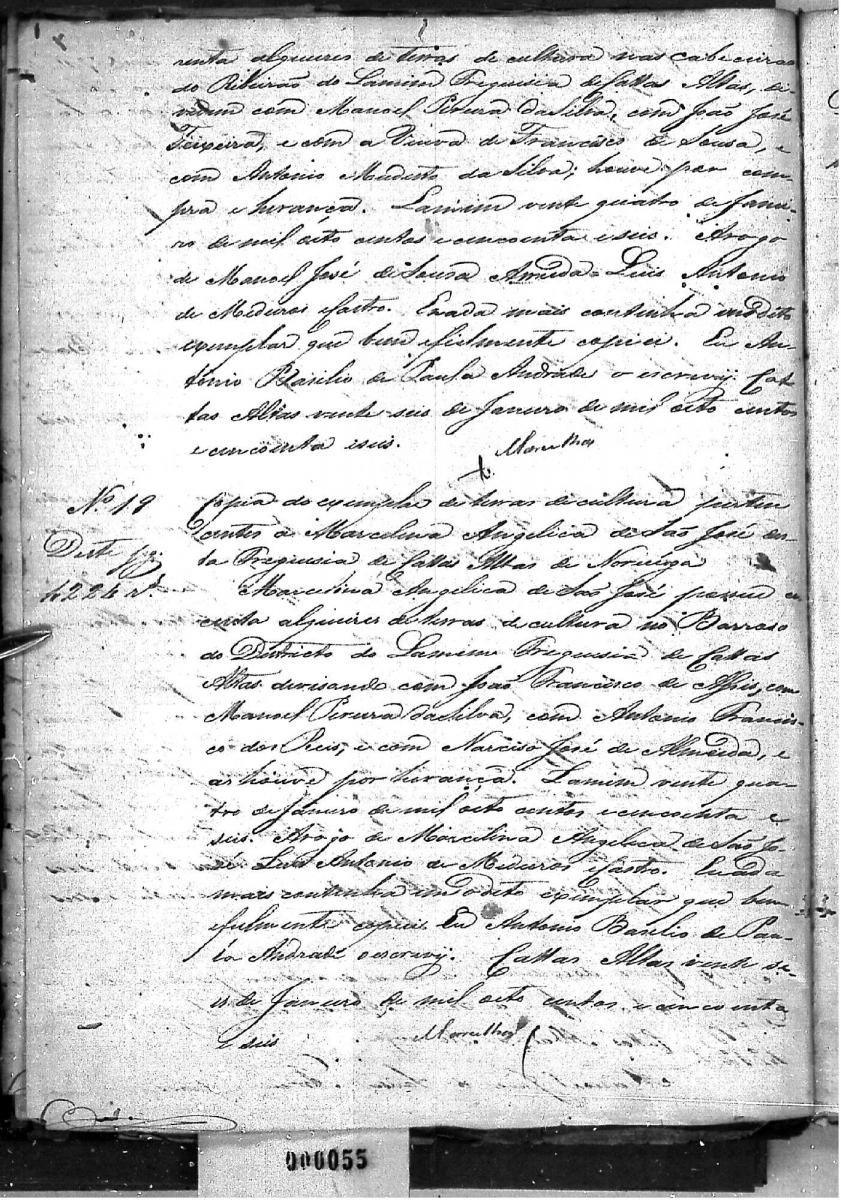 renta alqueires de terras de cultura nas cabeceiras
do Ribeirão do Lamim Freguesia de Cattas Altas, di-
videm com Manoel Pereira da Silva, com João José
Teixeira, e com a Viuva de Francisco de Sousa, e
com Antonio Modesto da Silva; houve por com-
pra e herança. Lamim vente quatro de Janei-
ro de mil oito centos e cincoenta e seis. Arogo
de Manoel José de Sousa Arruda = Luis Antonio
de Medeiros Castro. E nada mais continha em o dito
exemplar que bem e fielmente copiei. Eu An-
tonio Basilio de Paula Andrade o escrevy. Cat-
tas Altas vente seis de Janeiro de mil oito centos
e cincoenta e seis.
Nº 19
Deste pg.
4224 rs.
Copia do exemplar de terras de cultura perten
centes a Marcelina Angelica de São José des-
ta Freguesia de Cattas Altas de Noruega
Marcelina Angelica de São José possue
alqueires de terras de cultura no Barroso
do Districto do Lamim Freguesia de Cattas
Altas devisando com João Francisco de Assis, com
Manoel Pereira da Silva, com Antonio Francis-
co dos Reis, e com Narciso José de Almeida, e
as houve por herança. Lamim vente qua-
tro de Janeiro de mil oito centos e cincoenta e
seis. Arogo de Marcelina Angelica de São Jo-
sé Luis Antonio de Medeiros Castro. E nada
mais continha em o dito exemplar que bem
e fielmente copiei. Eu Antonio Basilio de Pau-
la Andrade o escrevy. Cattas Altas vente se-
is de Janeiro de mil oito centos e cincoenta
e seis
000055